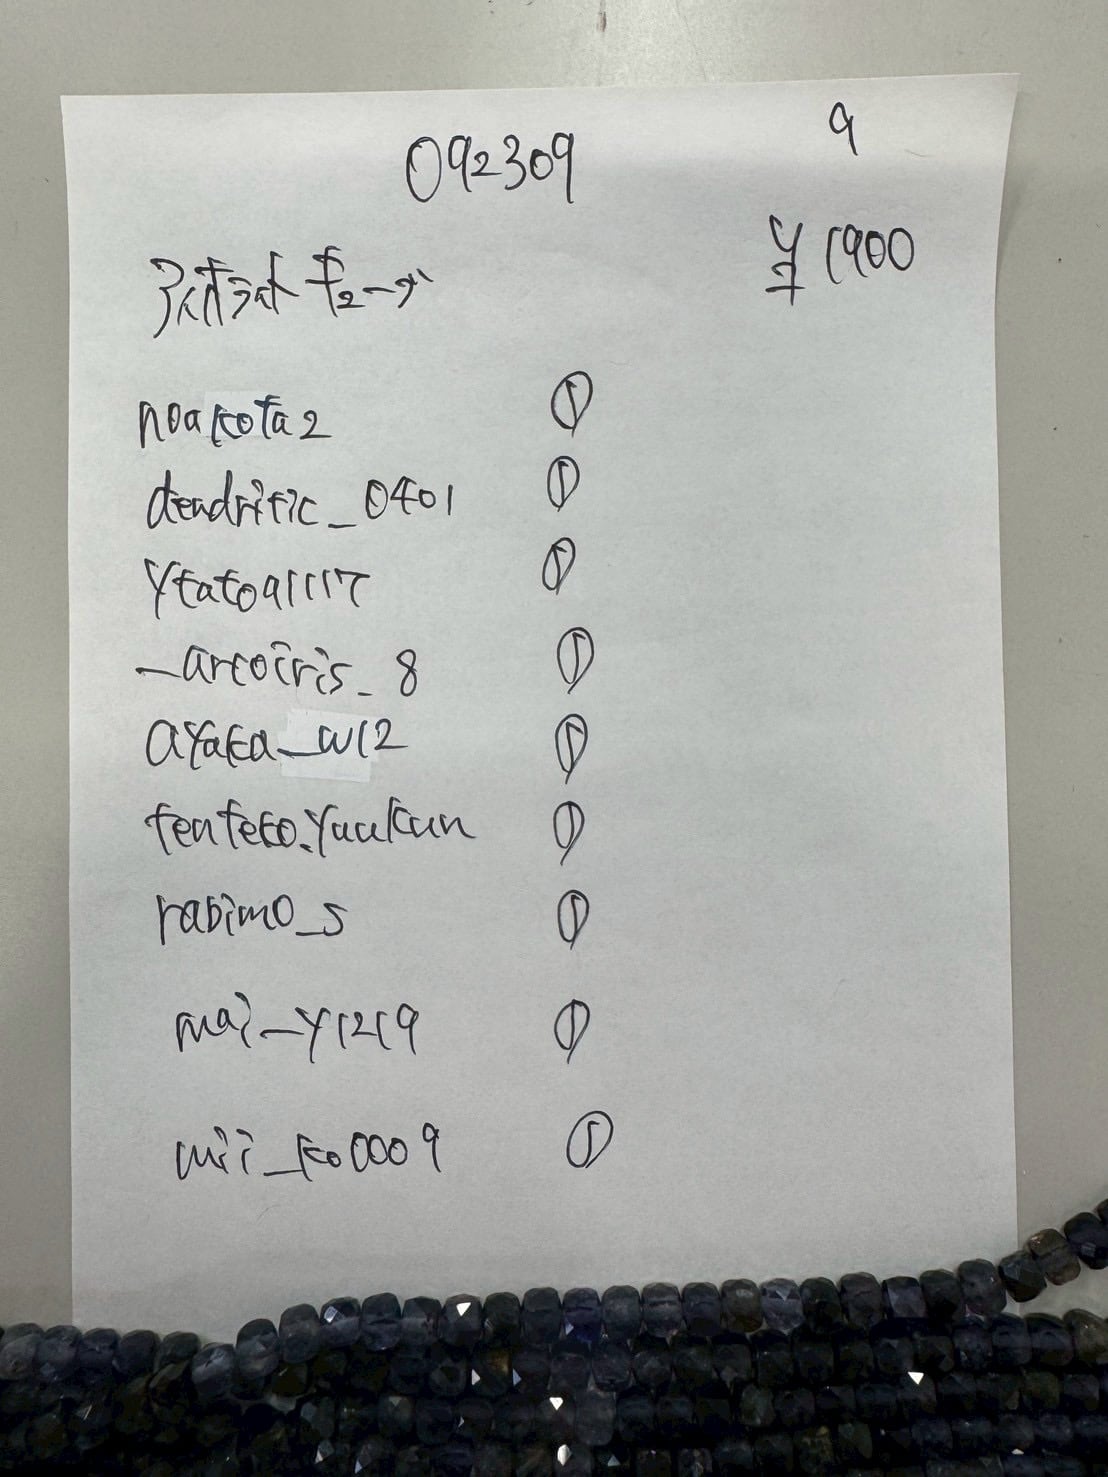 9
092309
¥1900
アイオライト キューブ
noakota2 ①
dendritic_0401 ①
ytato91117 ①
_arcoiris_8 ①
ayaka_w12 ①
tenteko.yuukun ①
rabimo_s ①
mai_y1219 ①
mii_ko0009 ①